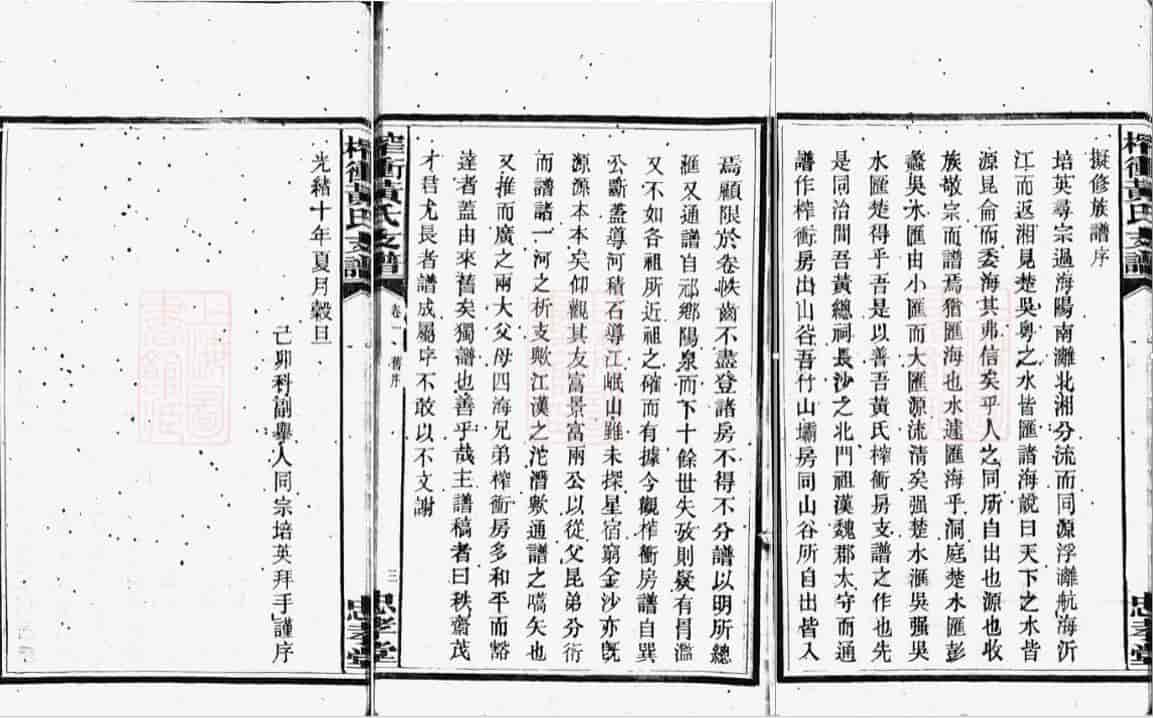 擬修族譜序
培英尋宗過海陽南灕北湘分流而同源浮灕航海沂
江而返湘見楚吳粵之水皆匯諸海說曰天下之水皆
源昆侖而委海其弗信矣乎人之同所自出也源也收
族敬宗而譜焉猶匯海也水遽匯海乎洞庭楚水匯彭
蠡吳水匯由小匯而大匯源流清矣强楚水滙吳强吳
水匯楚得乎吾是以善吾黃氏榨衝房支譜之作也先
是同治間吾黃總祠長沙之北門祖漢魏郡太守而通
譜作榨衝房出山谷吾竹山壩房同山谷所自出皆入
焉顧限於卷帙齒不盡登諸房不得不分譜以明所總
滙又通譜自祁鄉陽泉而下十餘世失攷則疑有冒濫
又不如各祖所近祖之確而有據今觀榨衝房譜自巽
公斷蓋導河積石導江岷山雖未探星宿窮金沙亦旣
源源本本矣仰觀其友富景富兩公以從父昆弟分衍
而譜諸一河之析支歟江漢之沱潛歟通譜之嚆矢也
又推而廣之兩大父母四海兄弟榨衝房多和平而豁
達者蓋由來舊矣獨譜也善乎哉主譜稿者曰秩齋茂
才君尤長者譜成屬序不敢以不文謝
榨衝黃氏支譜
卷一
舊序
三
忠孝堂
光緒十年夏月穀旦
己卯科副舉人同宗培英拜手謹序
榨衝黃氏支譜
忠孝堂
榨衝黃氏支譜
忠孝堂
上海圖書館藏